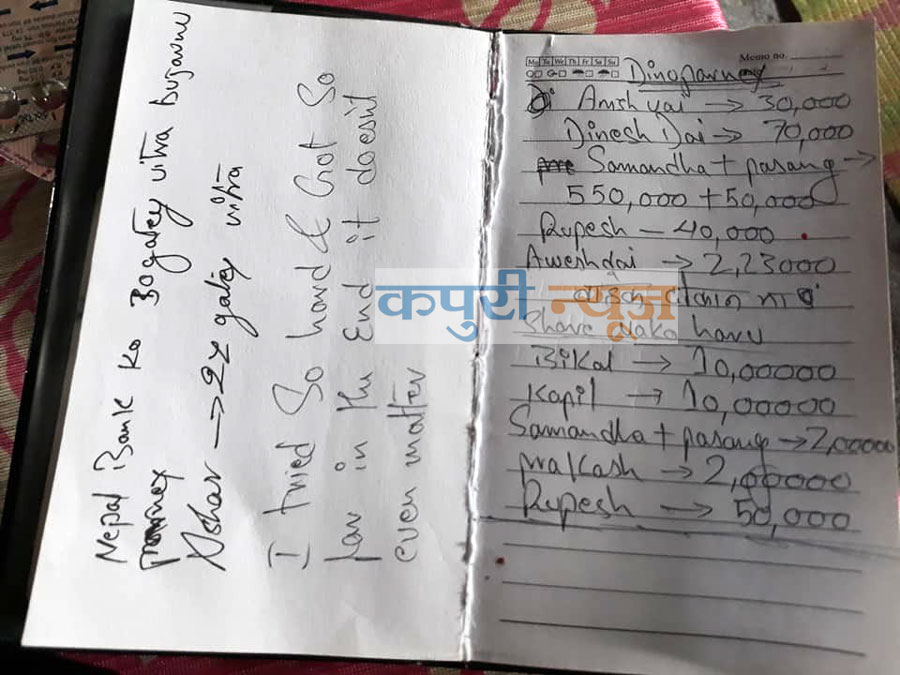 Nepal Bank ko 30 gatey vitra bujaune
Ashar → 22 gatey vitra
I tried So hard & Got So
far in the End it doesn't
even matter
Mo Tu We Th Fr Sa Su
Memo no.
Ansh vai → 30,000
Dinesh Dai → 70,000
Samandha + pasang →
550,000 + 50,000
Rupesh — 40,000
Awesh dai → 2,23000
कपुरी न्यूज
Share vako haru
Bikal → 10,00000
Kapil → 10,00000
Samandha + pasang → 2,00000
→ 2,00000
Rupesh → 50,000